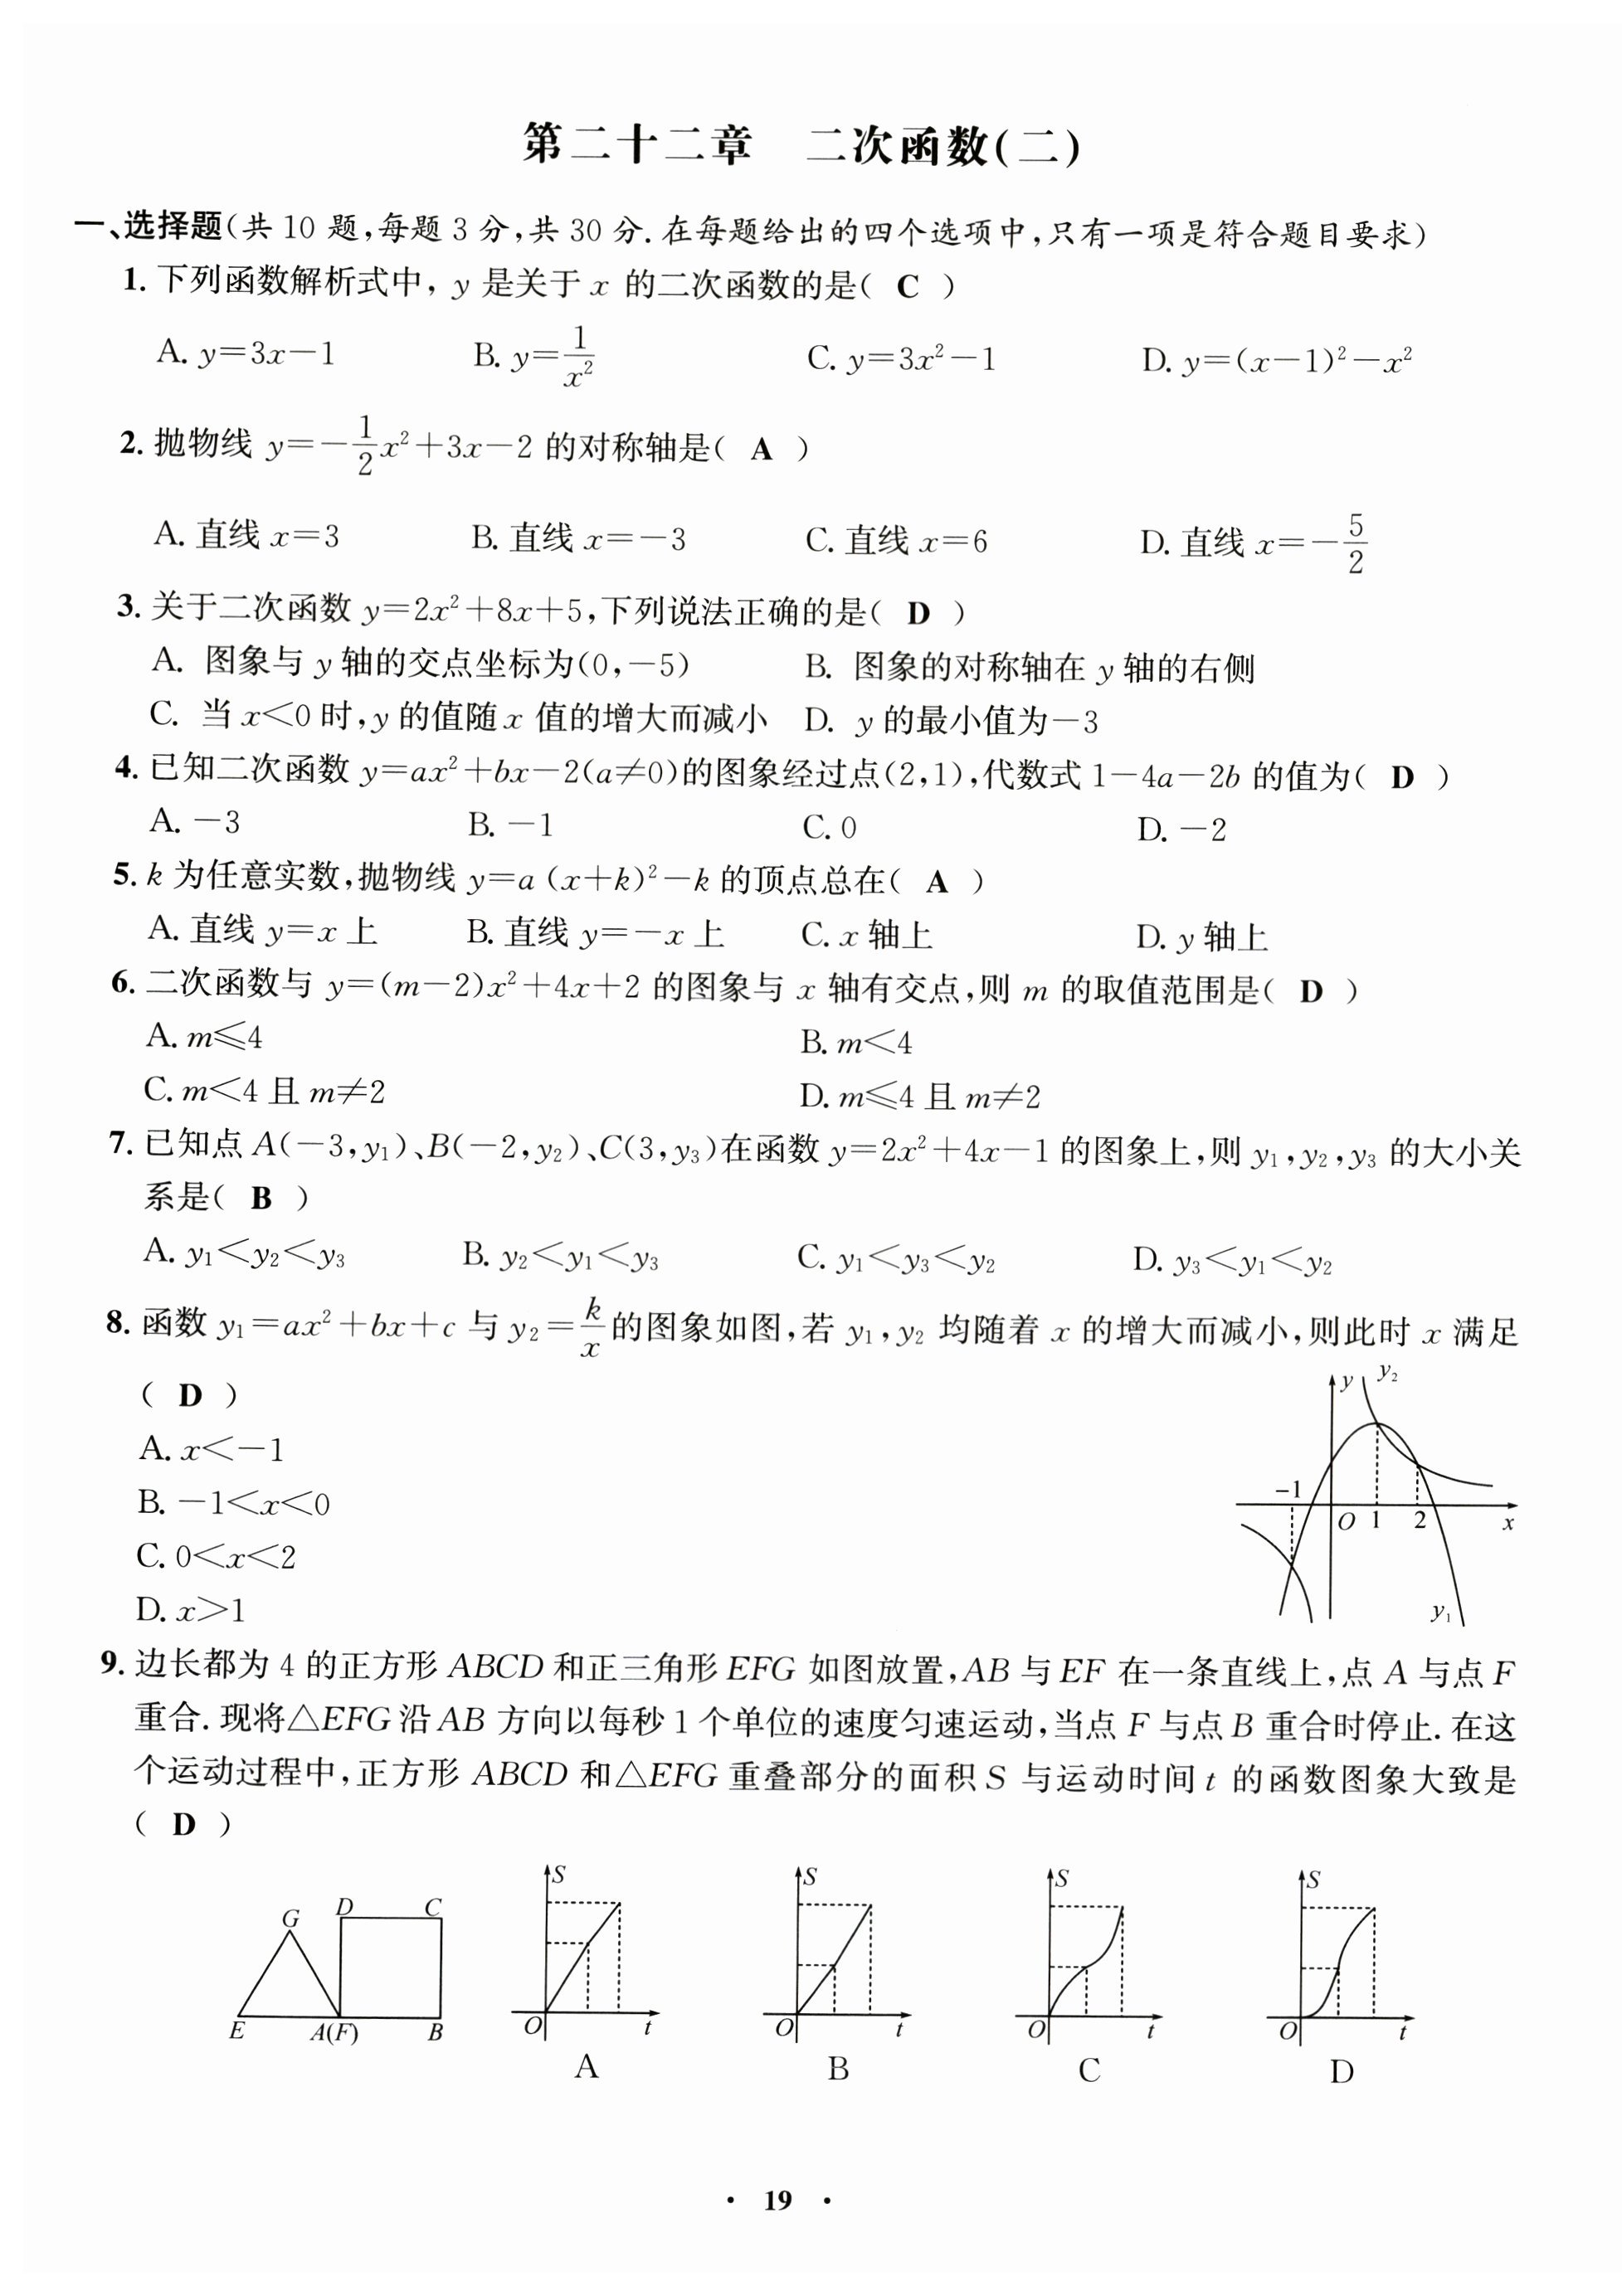 第二十二章 二次函数(二)
一、选择题(共10题,每题3分,共30分.在每题给出的四个选项中,只有一项是符合题目要求)
1. 下列函数解析式中, y 是关于 x 的二次函数的是( C )
A. y=3x-1 B. y=1/x² C. y=3x²-1 D. y=(x-1)²-x²
2. 抛物线 y=-1/2x²+3x-2 的对称轴是( A )
A. 直线 x=3 B. 直线 x=-3 C. 直线 x=6 D. 直线 x=-5/2
3. 关于二次函数 y=2x²+8x+5,下列说法正确的是( D )
A. 图象与 y 轴的交点坐标为(0,-5) B. 图象的对称轴在 y 轴的右侧
C. 当 x<0 时,y 的值随 x 值的增大而减小 D. y 的最小值为-3
4. 已知二次函数 y=ax²+bx-2(a≠0)的图象经过点(2,1),代数式 1-4a-2b 的值为( D )
A. -3 B. -1 C. 0 D. -2
5. k 为任意实数,抛物线 y=a (x+k)²-k 的顶点总在( A )
A. 直线 y=x 上 B. 直线 y=-x 上 C. x 轴上 D. y 轴上
6. 二次函数与 y=(m-2)x²+4x+2 的图象与 x 轴有交点,则 m 的取值范围是( D )
A. m≤4 B. m<4
C. m<4 且 m≠2 D. m≤4 且 m≠2
7. 已知点 A(-3,y₁)、B(-2,y₂)、C(3,y₃)在函数 y=2x²+4x-1 的图象上,则 y₁,y₂,y₃ 的大小关
系是( B )
A. y₁<y₂<y₃ B. y₂<y₁<y₃ C. y₁<y₃<y₂ D. y₃<y₁<y₂
8. 函数 y₁=ax²+bx+c 与 y₂=k/x 的图象如图,若 y₁,y₂ 均随着 x 的增大而减小,则此时 x 满足
( D )
A. x<-1
B. -1<x<0
C. 0<x<2
D. x>1
y y₂
-1
O 1 2 x
y₁
9. 边长都为 4 的正方形 ABCD 和正三角形 EFG 如图放置,AB 与 EF 在一条直线上,点 A 与点 F
重合. 现将△EFG 沿 AB 方向以每秒 1 个单位的速度匀速运动,当点 F 与点 B 重合时停止. 在这
个运动过程中,正方形 ABCD 和△EFG 重叠部分的面积 S 与运动时间 t 的函数图象大致是
( D )
S S S S
G D C
E A(F) B O t O t O t O t
A B C D
· 19 ·